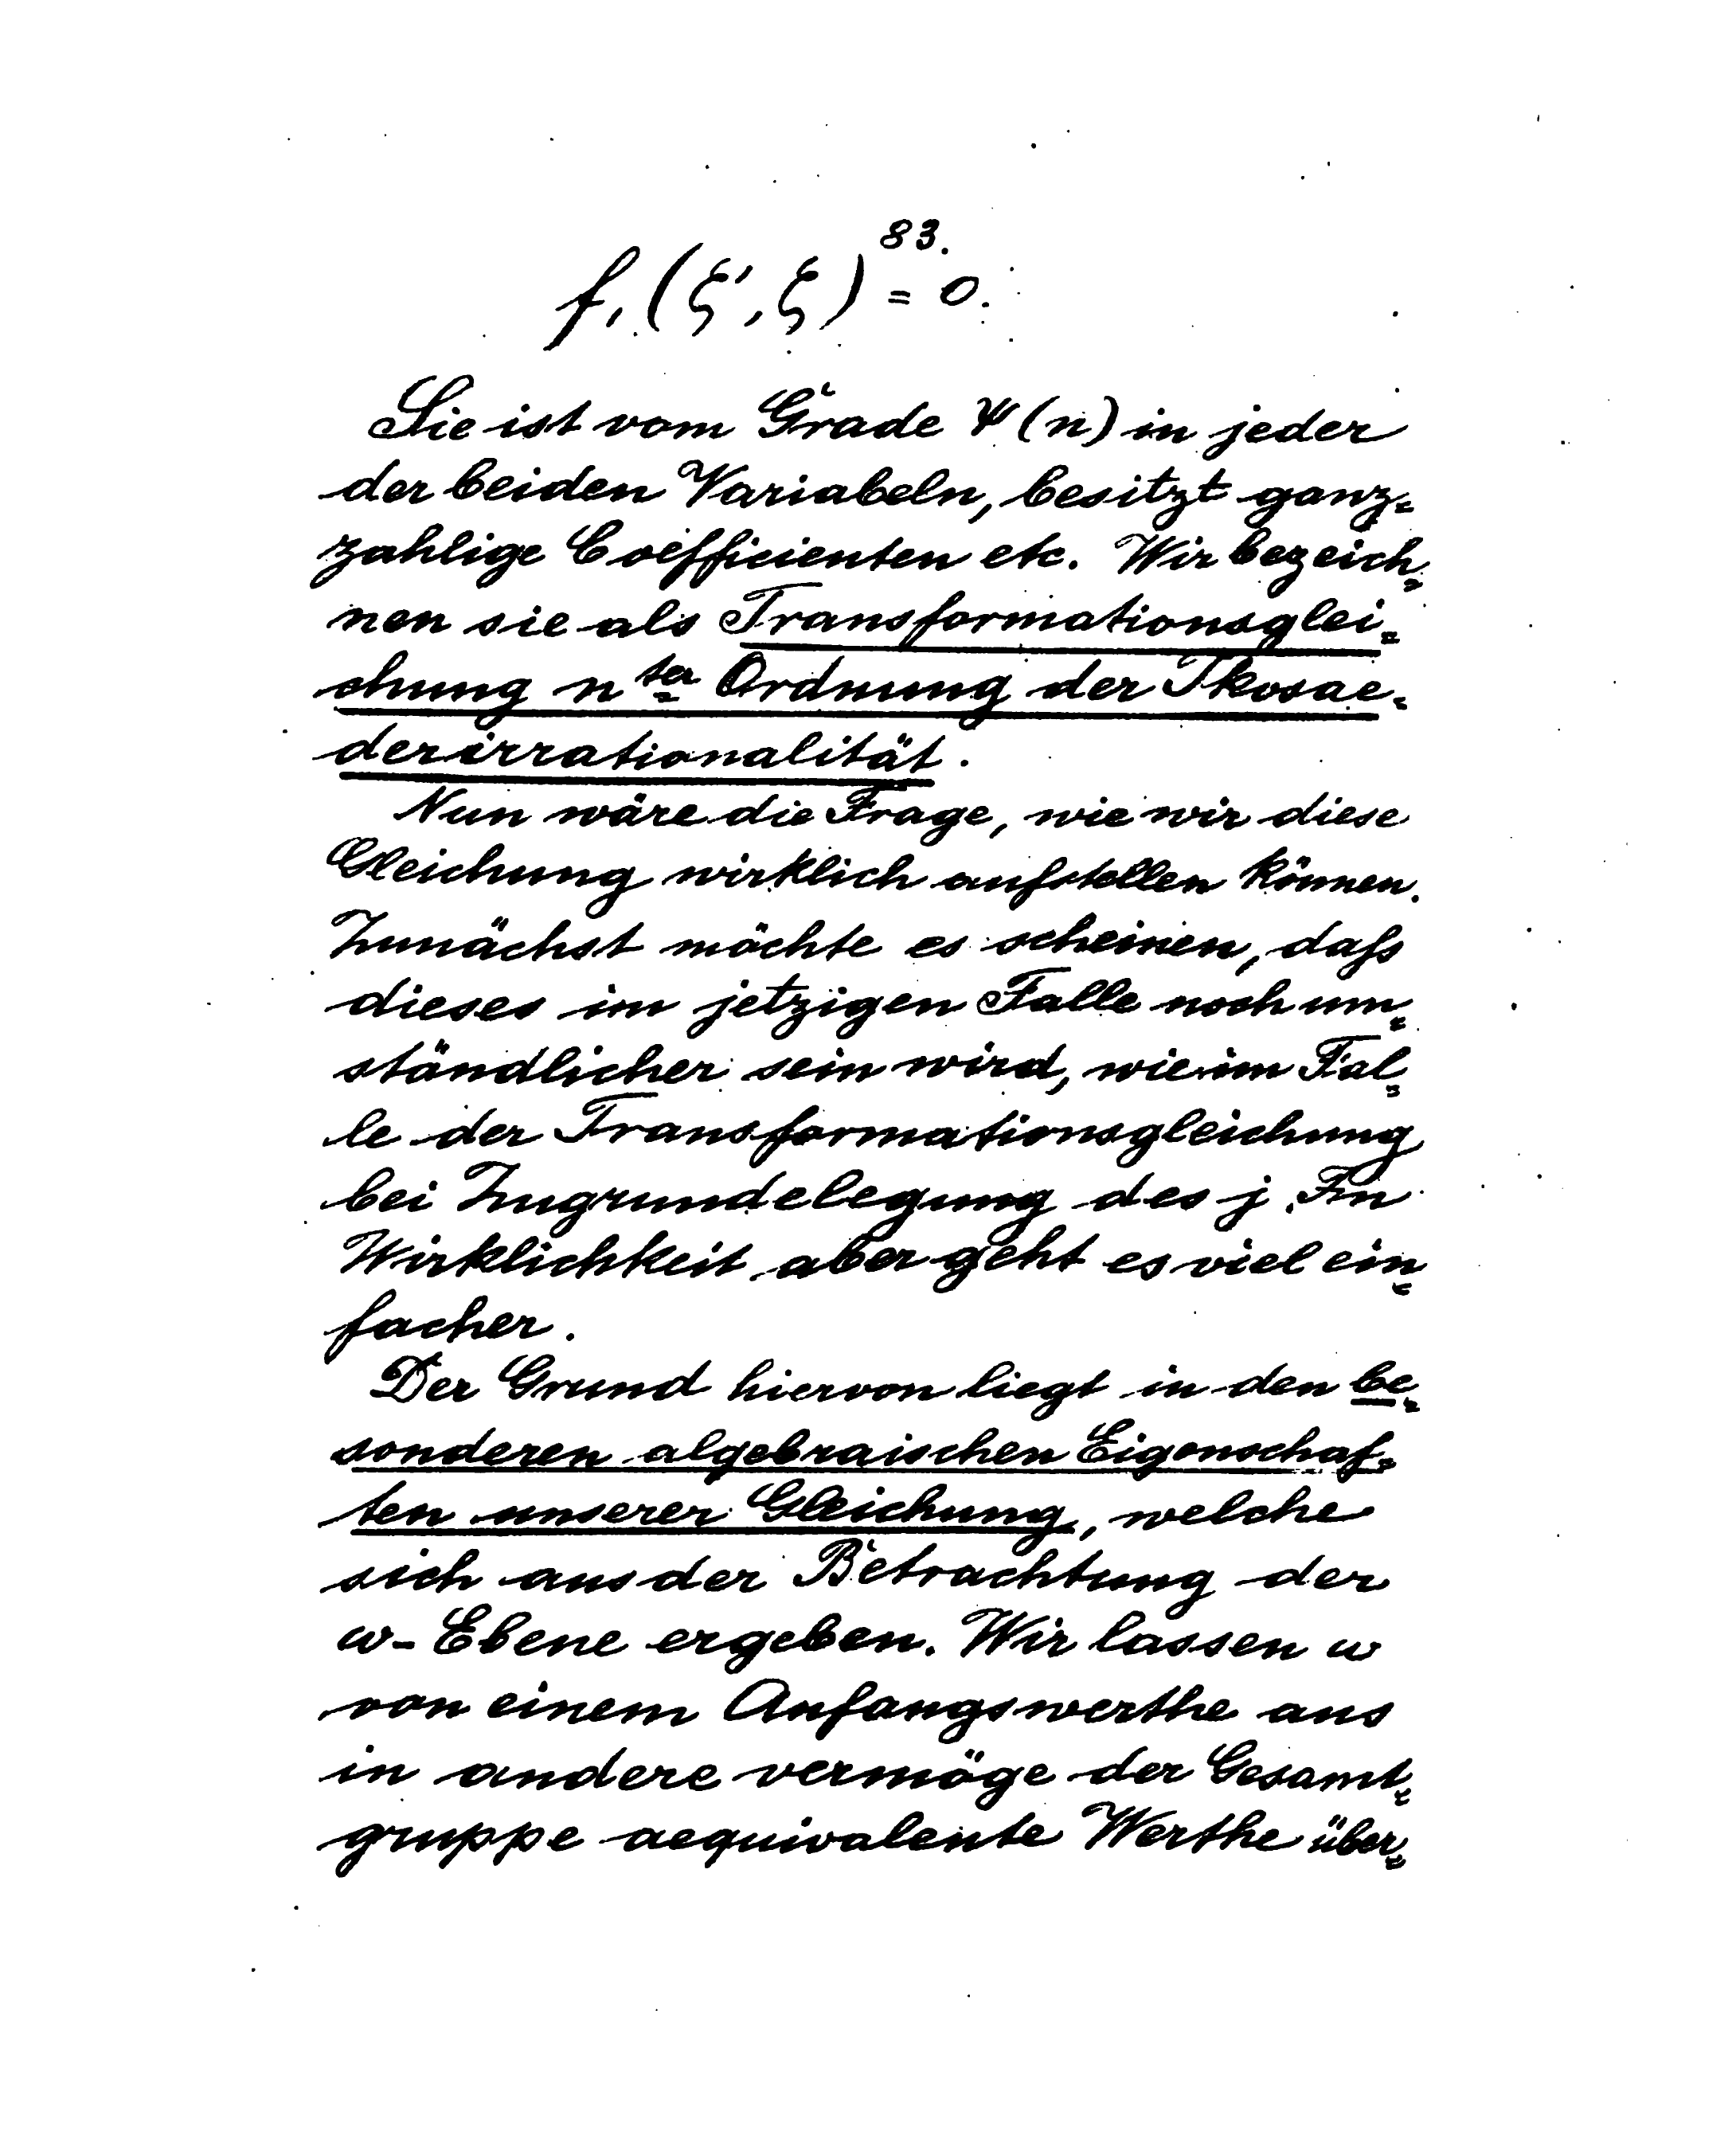 83.
f₁(ξ', ξ) = 0.
Sie ist vom Grade ψ(n) in jeder
der beiden Variabeln, besitzt ganz=
zahlige Coëfficienten etc. Wir bezeich=
nen sie als Transformationsglei=
chung nter Ordnung der Ikosae=
derirrationalität.
Nun wäre die Frage, wie wir diese
Gleichung wirklich aufstellen können.
Zunächst möchte es scheinen, daſs
dieses im jetzigen Falle noch um=
ständlicher sein wird, wie im Fal=
le der Transformationsgleichung
bei Zugrundelegung des j. In
Wirklichkeit aber geht es viel ein=
facher.
Der Grund hiervon liegt in den be=
sonderen algebraischen Eigenschaf=
ten unserer Gleichung, welche
sich aus der Betrachtung der
ω-Ebene ergeben. Wir lassen ω
von einem Anfangswerthe aus
in andere vermöge der Gesamt=
gruppe aequivalente Werthe über=